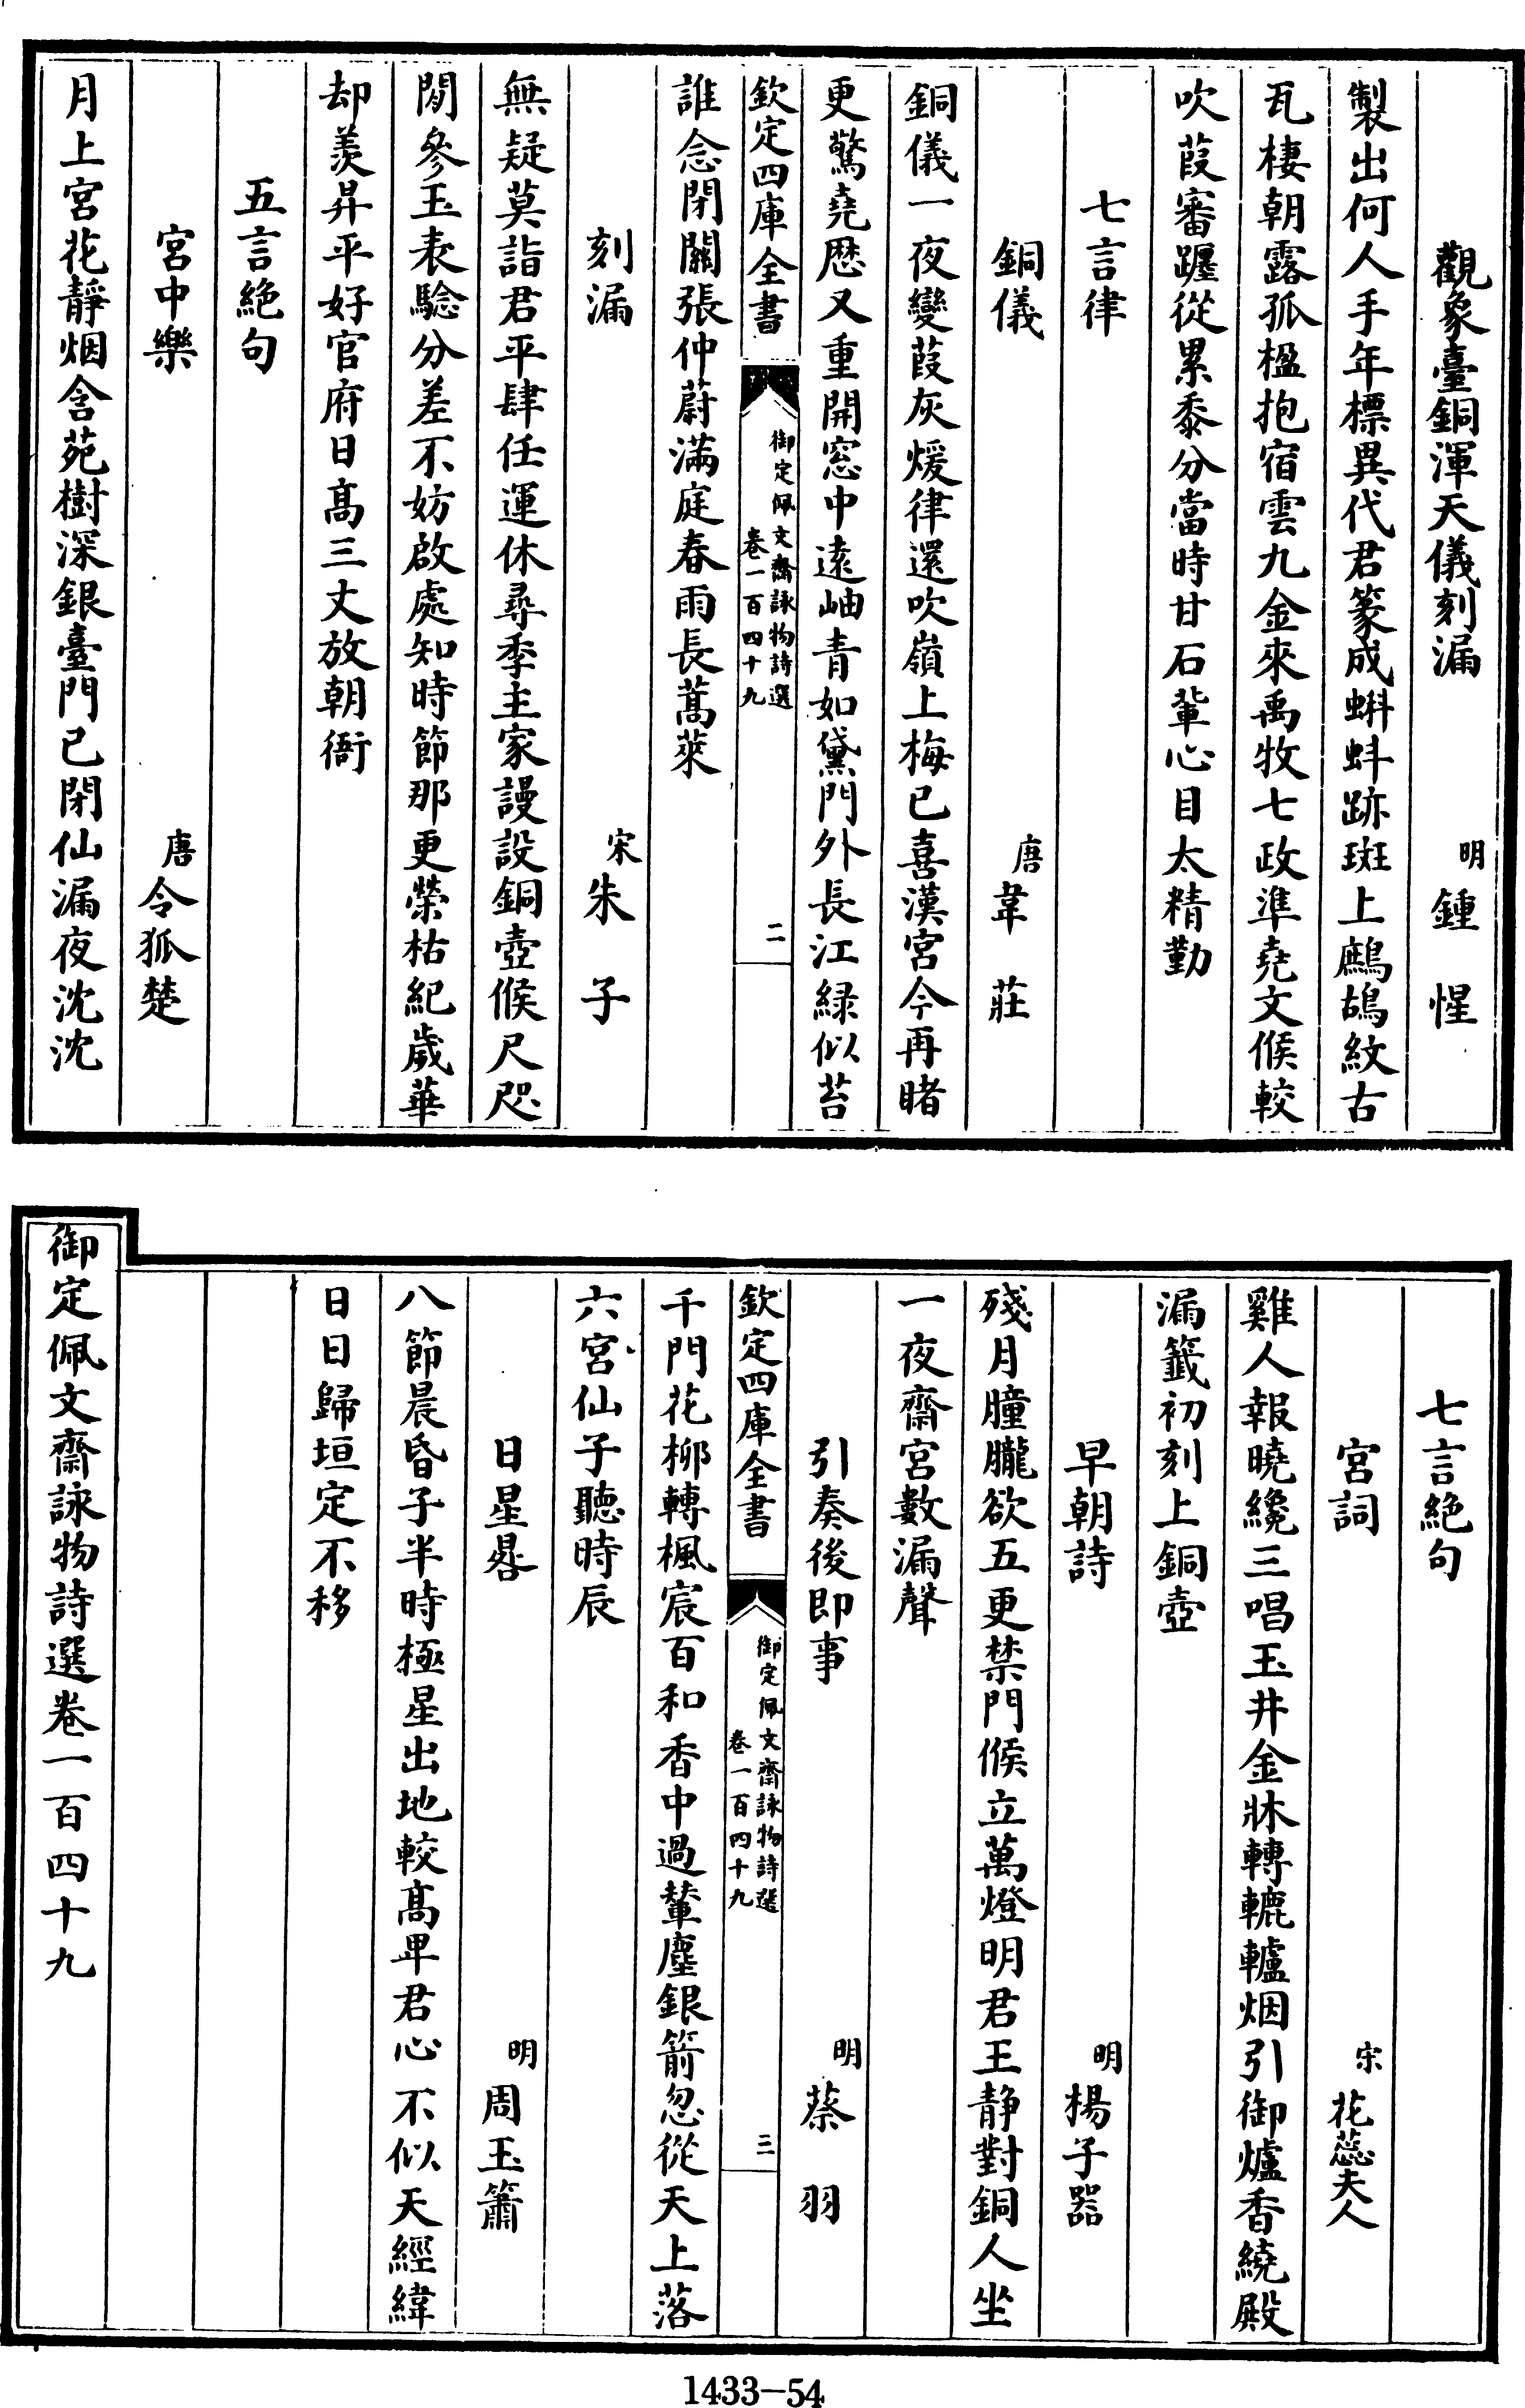 觀象臺銅渾天儀刻漏　明鍾惺
製出何人手年標異代君篆成蝌蚪跡斑上鷓鴣紋古
瓦棲朝露孤楹抱宿雲九金來禹牧七政準堯文候較
吹葭審躔從累黍分當時甘石輩心目太精勤
七言律
銅儀　唐韋莊
銅儀一夜變葭灰煖律還吹嶺上梅已喜漢宮今再睹
更驚堯厯又重開窓中遠岫青如黛門外長江緑似苔
欽定四庫全書　御定佩文齋詠物詩選　卷一百四十九　二
誰念閉關張仲蔚滿庭春雨長蒿萊
刻漏　宋朱子
無疑莫詣君平肆任運休尋季主家謾設銅壺候尺咫
閒參玉表騐分差不妨啟處知時節那更榮枯紀嵗華
却羨昇平好官府日髙三丈放朝衙
五言絶句
宮中樂　唐令狐楚
月上宮花靜烟含苑樹深銀臺門已閉仙漏夜沈沈
七言絶句
宮詞　宋花蕊夫人
雞人報曉纔三唱玉井金牀轉轆轤烟引御爐香繞殿
漏籤初刻上銅壺
早朝詩　明楊子器
殘月朣朧欲五更禁門候立萬燈明君王静對銅人坐
一夜齋宮數漏聲
引奏後即事　明蔡羽
欽定四庫全書　御定佩文齋詠物詩選　卷一百四十九　三
千門花柳轉楓宸百和香中過輦塵銀箭忽從天上落
六宮仙子聽時辰
日星晷　明周玉簫
八節晨昏子半時極星出地較髙卑君心不似天經緯
日日歸垣定不移
御定佩文齋詠物詩選卷一百四十九
1433-54